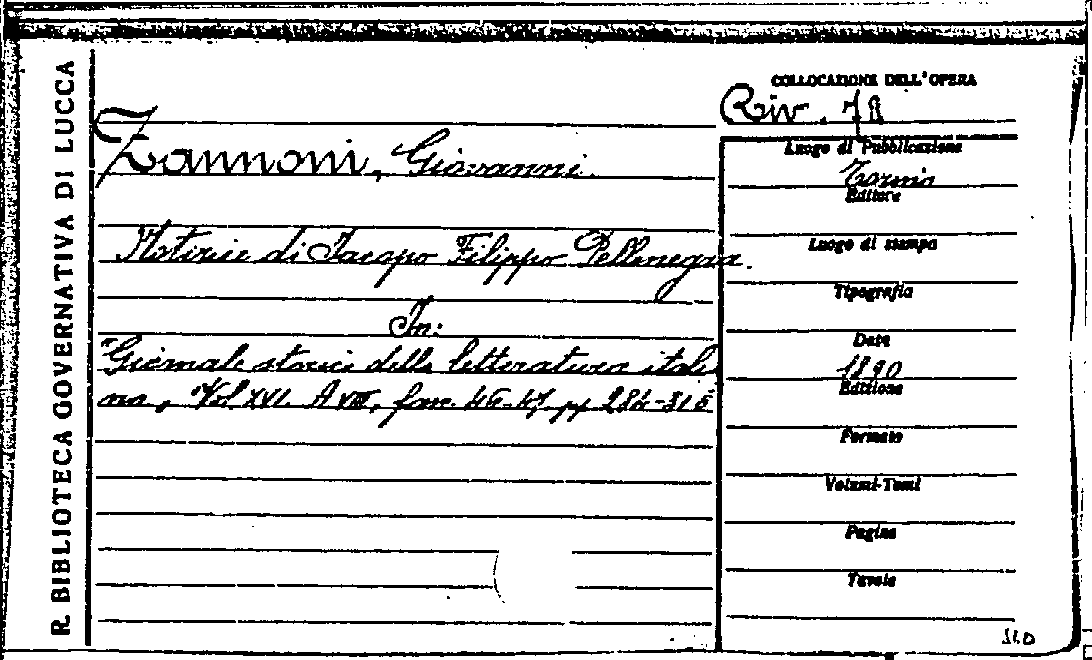 R. BIBLIOTECA GOVERNATIVA DI LUCCA
COLLOCAZIONE DELL'OPERA
Riv. 78
Zannoni, Giovanni.
Notizie di Jacopo Filippo Pellenegra.
In:
Giornale storico della letteratura italia
na, Vol XVI. A VIII, fasc. 46-47 pp 284-315
Luogo di Pubblicazione
Torino
Editore
Luogo di stampa
Tipografia
Data
1890
Edizione
Formato
Volumi-Tomi
Pagine
Tavole